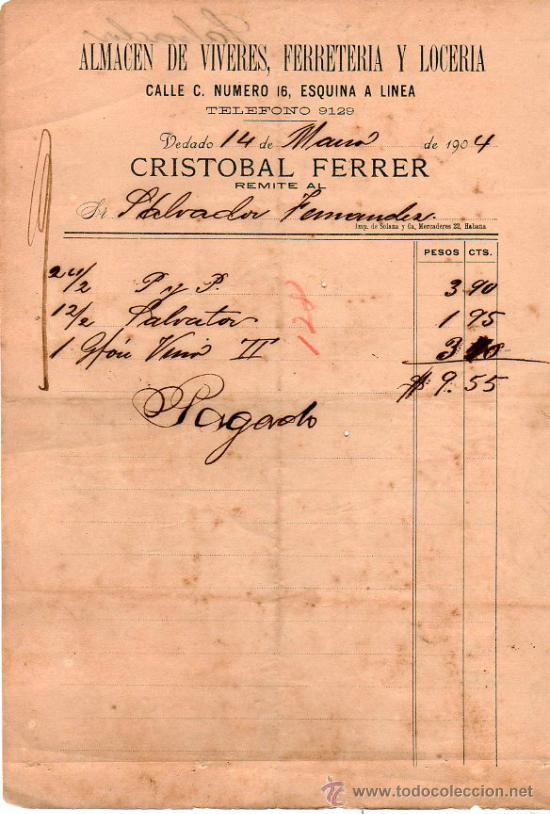 ALMACEN DE VIVERES, FERRETERIA Y LOCERIA
CALLE C. NUMERO 16, ESQUINA A LINEA
TELEFONO 9129
Vedado 14 de Marzo de 1904
CRISTOBAL FERRER
REMITE AL
Sr. Salvador Fernandez
Imp. de Solana y Ca, Mercaderes 22, Habana
PESOS CTS.
24/2 P y P. 3 90
12/2 Salvator 1 95
1 Vino II 3
$ 9.55
Pagado
128
todocoleccion
www.todocoleccion.net